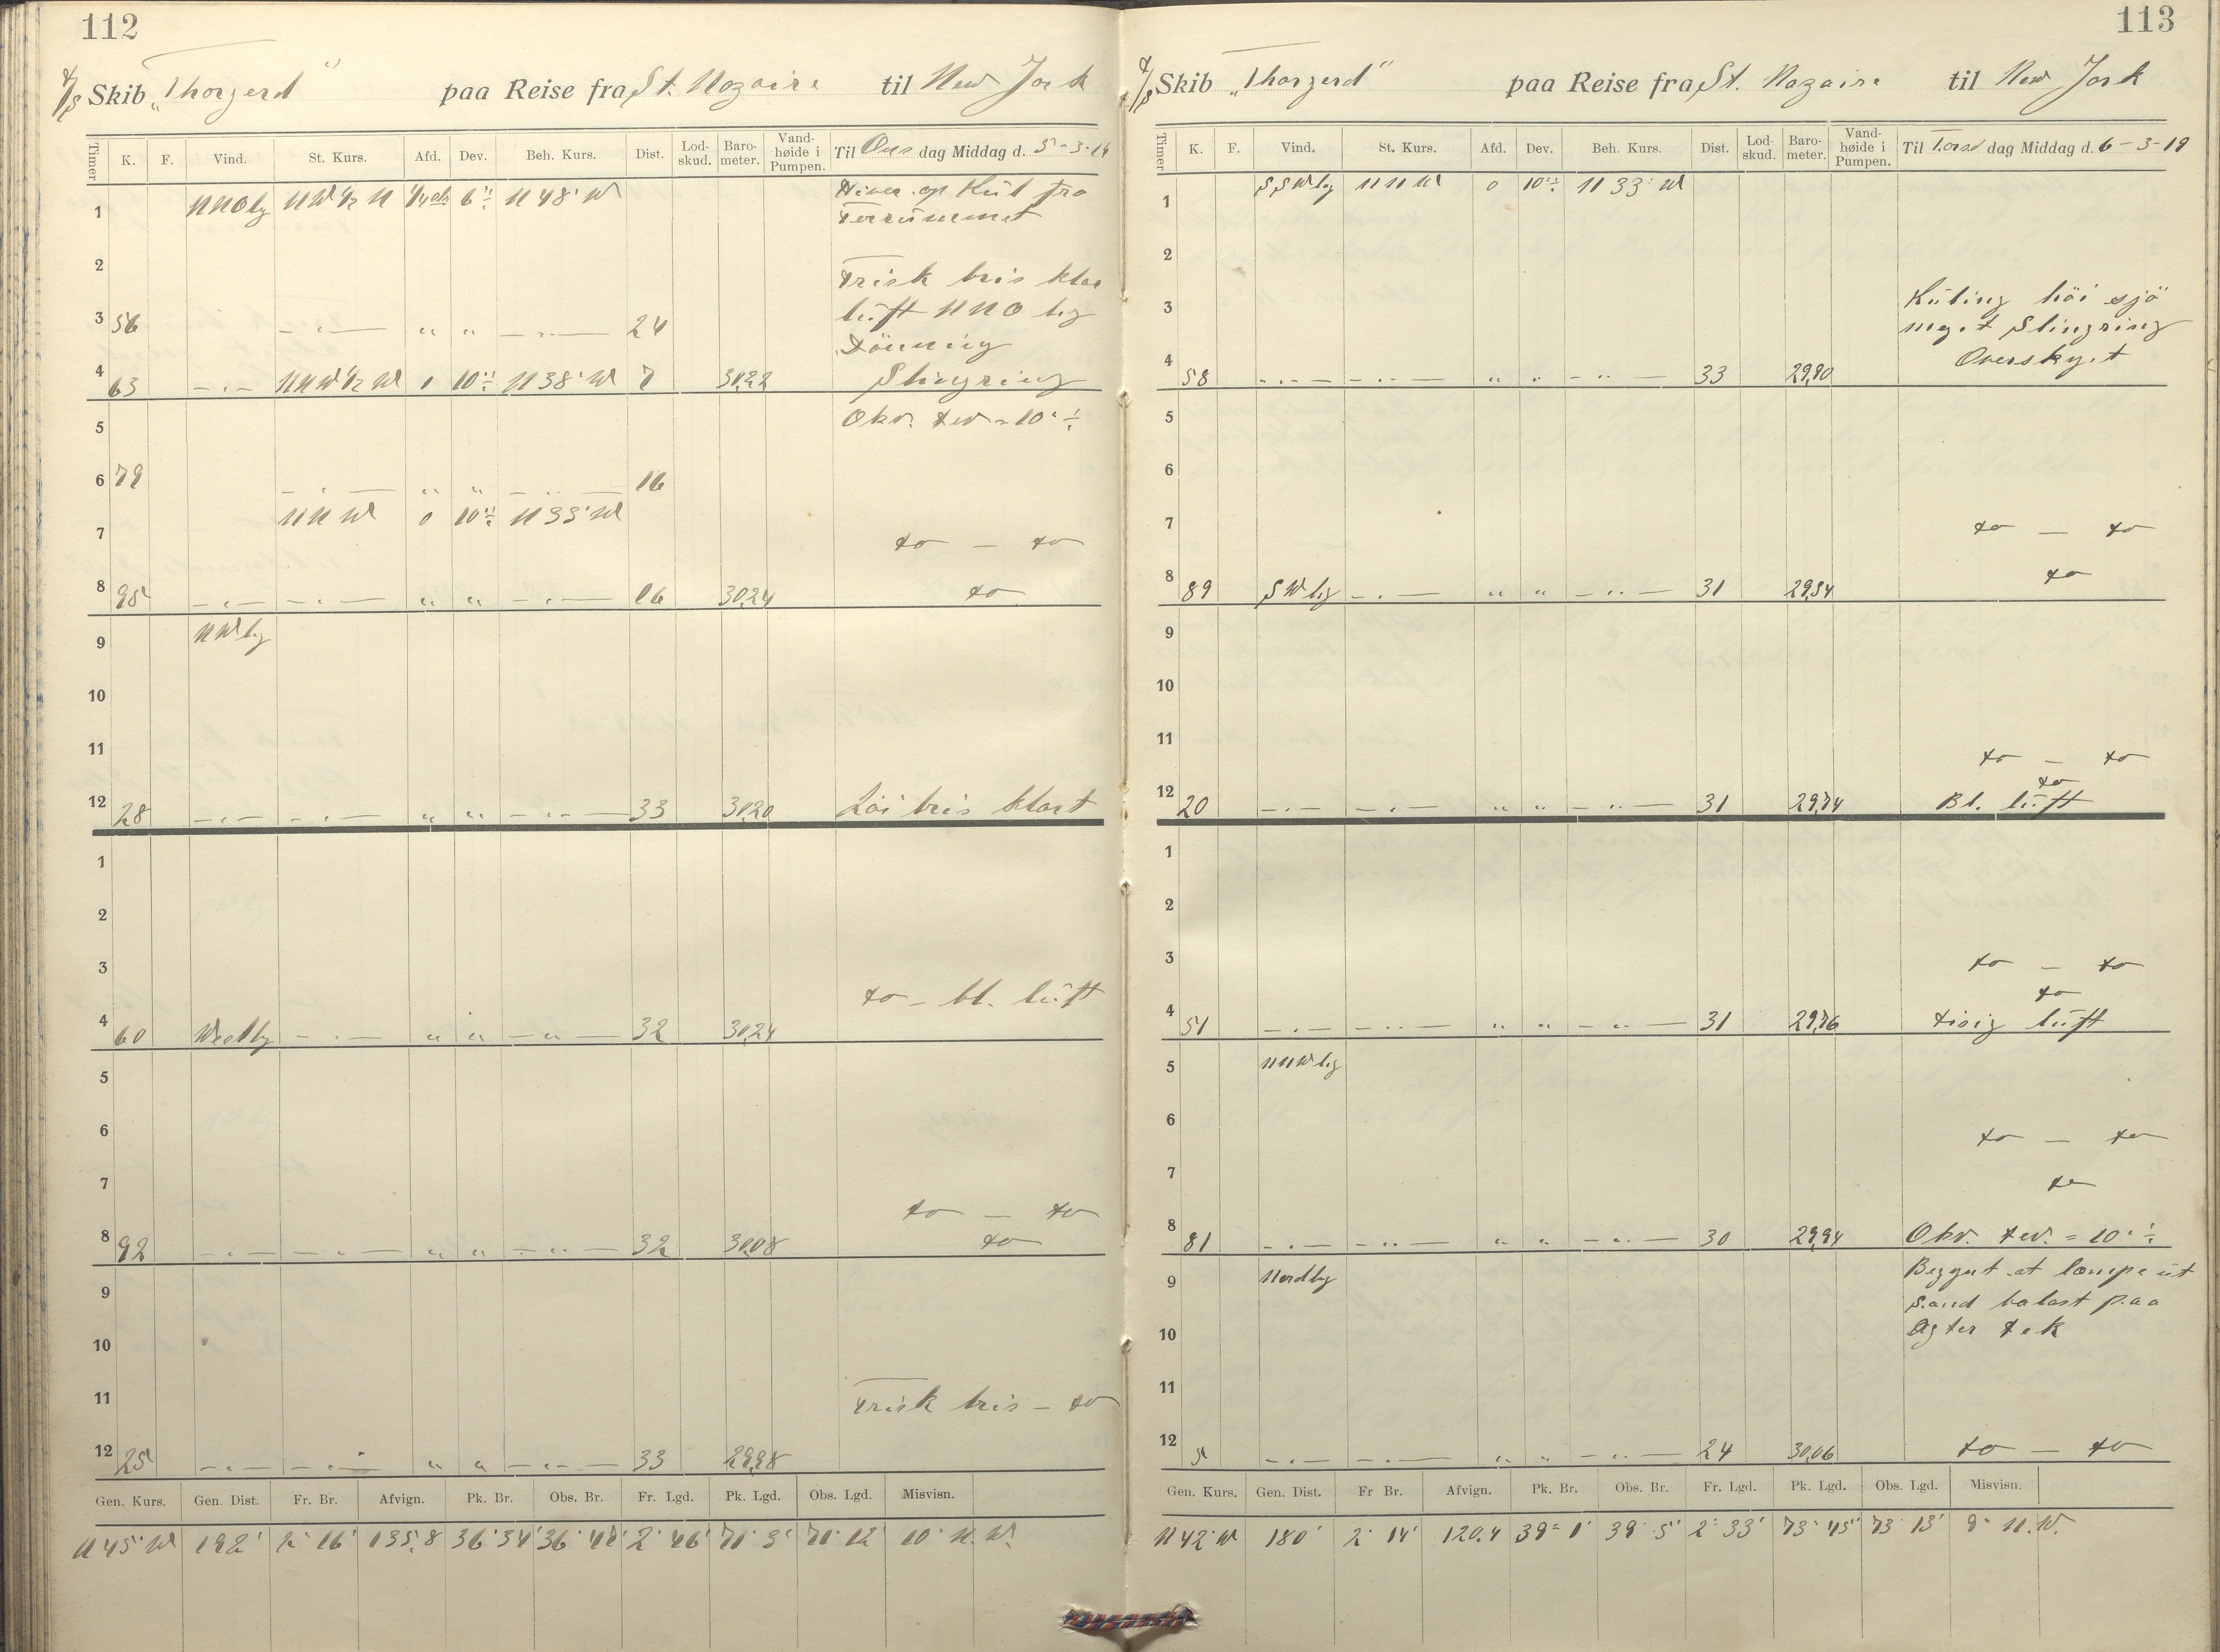 112
D/S Skib „Thorgerd“ paa Reise fra St. Nazaire til New York
Timer K. F. Vind. St. Kurs. Afd. Dev. Beh. Kurs. Dist. Lod-skud. Baro-meter. Vand-høide i Pumpen. Til Ons dag Middag d. 5-3-19
1 NNOlg NW½N 6°÷ N 48° W op Kul fra
2
Frisk bris klar
3 56 — „ — „ „ — „ — 24 luft NNO lig
Dönning
4 63 — „ — NNW½W 0 10°÷ N 38° W 7 30,22 Slingring
5 Obs. Dev = 10° ÷
6 79 — „ — „ „ — „ — 16
NNW 0 10°÷ N 33° W
7 do — do
8 95 — „ — — „ — „ „ — „ — 16 30,24 do
9 NWlg
10
11
12 28 — „ — — „ — „ „ — „ — 33 30,20 Löi bris klart
1
2
3
do - bl. luft
4 60 Westlg — „ — „ „ — „ — 32 30,24
5
6
7
do — do
8 92 — „ — — „ — „ „ — „ — 32 30,08 do
9
10
11 Frisk bris — do
12 25 — „ — — „ — „ „ — „ — 33 29,98
Gen. Kurs. Gen. Dist. Fr. Br. Afvign. Pk. Br. Obs. Br. Fr. Lgd. Pk. Lgd. Obs. Lgd. Misvisn.
N 45° W 192' 2° 16' 135,8 36° 34' 36° 2° 46' 71° 3' 71° 12' 10° N.W.
113
D/S Skib „Thorgerd“ paa Reise fra St. Nazaire til New York
Timer K. F. Vind. St. Kurs. Afd. Dev. Beh. Kurs. Dist. Lod-skud. Baro-meter. Vand-høide i Pumpen. Til Torsd dag Middag d. 6-3-19
1 SSWlg NNW 0 10°÷ N 33° W
2
3 Kuling höi sjö
meget Slingring
4 58 — „ — — „ — „ „ — „ — 33 29,90 Overskyet
5
6
7 do — do
8 89 SWlg — „ — „ „ — „ — 31 29,84 do
9
10
11 do — do
do
12 20 — „ — — „ — „ „ — „ — 31 29,74 Bl. luft
1
2
3 do — do
do
4 51 — „ — — „ — „ „ — „ — 31 29,76 disig luft
5 NNWlg
6 do — do
7 do
8 81 — „ — — „ — „ „ — „ — 30 29,94 Obs. Dev. = 10° ÷
9 Nordlg Begynt at læmpe ut
Sand balast paa
10 Agter dek
11
12 5 — „ — — „ — „ „ — „ — 24 30,06 do — do
Gen. Kurs. Gen. Dist. Fr Br. Afvign. Pk. Br. Obs. Br. Fr. Lgd. Pk. Lgd. Obs. Lgd. Misvisn.
N 42° W 180' 2° 14' 120,4 39° 1' 39° 5' 2° 33' 73° 45' 73° 13' 9° N.W.